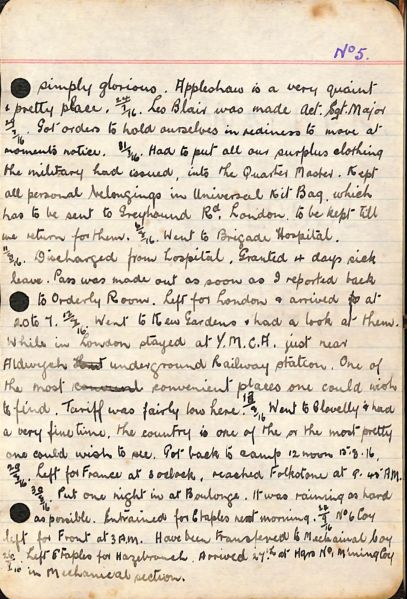 No 5.
simply glorious. Appleshaw is a very quaint
& pretty place. /16. Leo Blair was made Act. Sgt. Major
/16. Got orders to hold ourselves in rediness to move at
moments notice. /16. Had to put all our surplus clothing
the military had issued, into the Quarter Master. Kept
all personal belongings in Universal Kit Bag, which
has to be sent to Greyhound Rd, London. to be kept till
we return for them. /16. Went to Brigade Hospital.
/16. Discharged from hospital, Granted 4 days sick
leave. Pass was made out as soon as I reported back
to Orderly Room. Left for London & arrived at
20 to 7. /16. Went to Kew Gardens & had a look at them.
While in London stayed at Y.M.C.A. just near
Aldwych underground Railway station. One of
the most convenient places one could wish
to find. Tariff was fairly low here. /16. Went to Clovelly & had
a very fine time, the country is one of the or the most pretty
one could wish to see. Got back to camp 12 noon 15.8.16.
/16. Left for France at 3 oclock, reached Folkstone at 9.45 A.M.
/16. Put one night in at Boulonge. It was raining as hard
as possible. Entrained for Etaples next morning. /16 No 6 Coy
left for Front at 3 A.M. Have been transfered to Mechainal Coy
/16 Left Etaples for Hazebrouch. Arrived 27th at Hqrs No 1 Mining Coy
in Mechanical section.